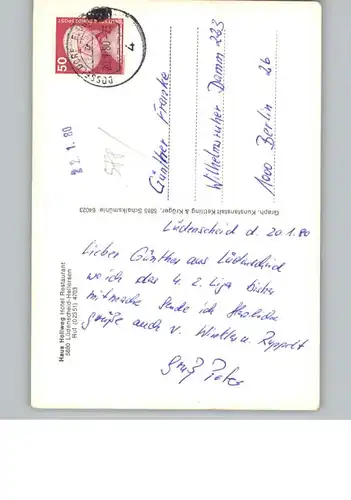 50
DEUTSCHE BUNDESPOST
DÜSSELDORF
4
22.1.80
578/
Günther Franke
Wilhelmsruher Damm 223
1000 Berlin 26
Graph. Kunstanstalt Ketting & Krüger, 5885 Schalksmühle 64023
Haus Hellweg Hotel Restaurant
5880 Lüdenscheid-Hellersen
Ruf (02351) 4703
Lüdenscheid d. 20.1.80
Lieber Günther aus Lüdenscheid
wo ich das 4. 2. Liga Turnier
mitmache sende ich Herzliche
Grüße auch v. Winkler u. Ruppelt
Gruß Peter